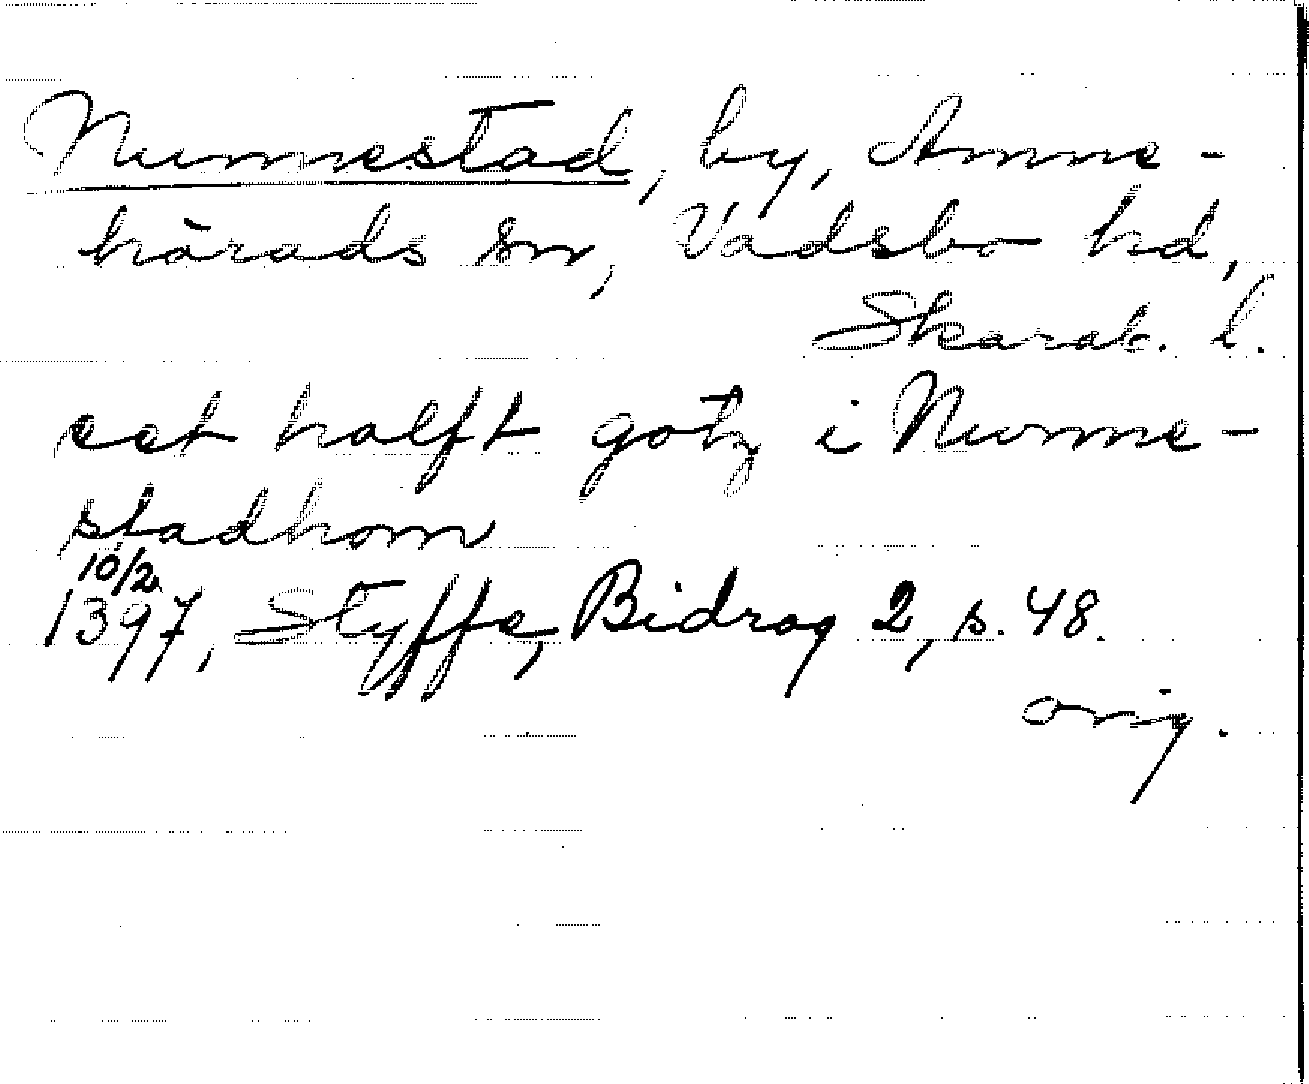 Nunnestad, by, Amne-
härads sn, Vadsbo hd,
Skarab. l.
eet halft gotz i Nunne-
stadhom
10/2
1397, Styffe, Bidrag 2, s. 48.
orig.